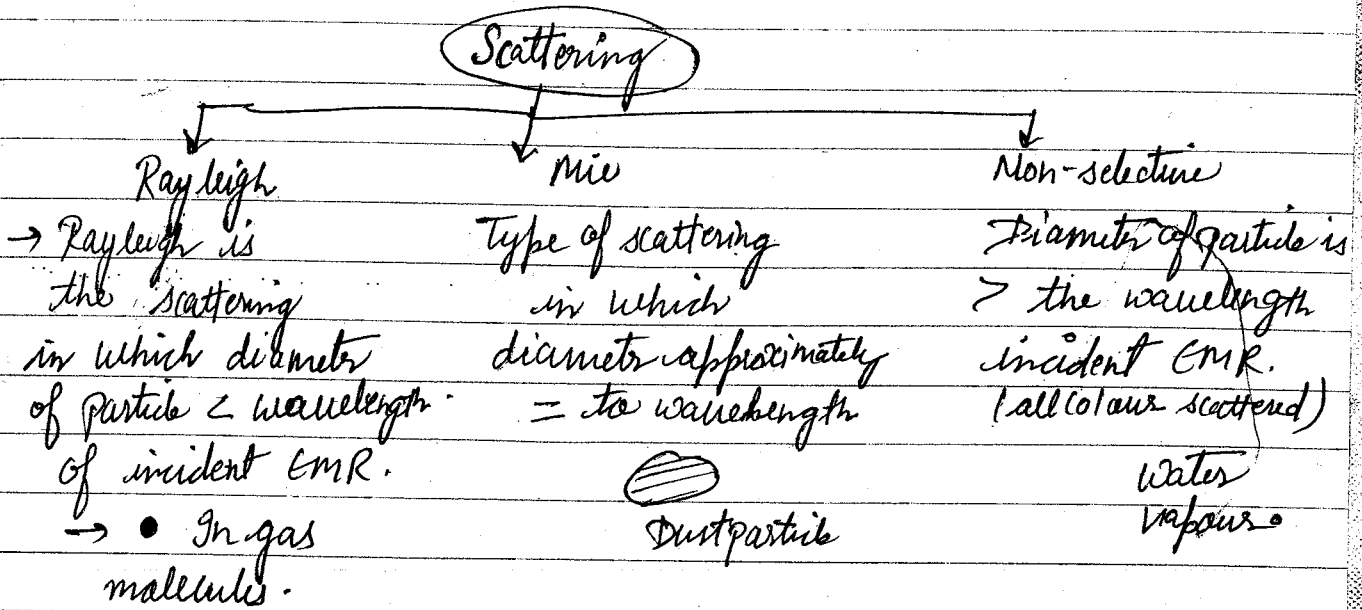 Scattering
Rayleigh
→ Rayleigh is
the scattering
in which diameter
of particle < wavelength
of incident EMR.
→ • In gas
molecules.
Mie
Type of scattering
in which
diameter approximately
= to wavelength
Dust particle
Non-selective
Diameter of particle is
> the wavelength
incident EMR.
(all colour scattered)
Water
vapour.